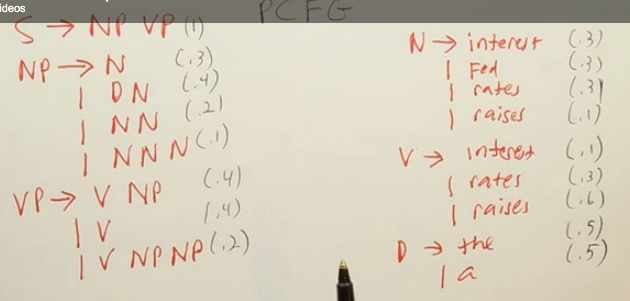 ideos
PCFG
S → NP VP (1)
NP → N (.3)
| D N (.4)
| N N (.2)
| N N N (.1)
VP → V NP (.4)
| V (.4)
| V NP NP (.2)
N → interest (.3)
| Fed (.3)
| rates (.3)
| raises (.1)
V → interest (.1)
| rates (.3)
| raises (.6)
D → the (.5)
| a (.5)